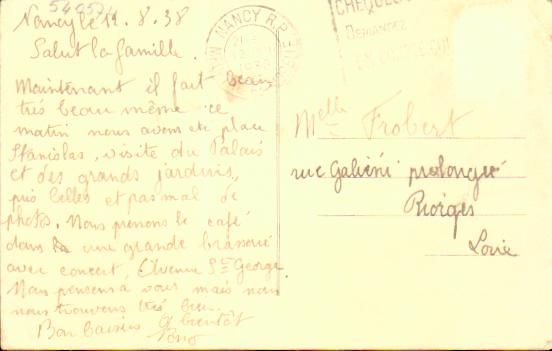 Nancy le 12.8.38
Salut la famille.
Maintenant il fait beau
très beau même ce
matin nous avons été place
Stanislas, visite du Palais
et des grands jardins,
puis belles et pas mal de
photos. Nous prenons le café
dans une grande brasserie
avec concert, St George.
Nous pensons à vous mais nous
nous trouvons très bien.
Bon baisers à bientôt
NANCY R.P.
CHEQUES
DEMANDEZ
UN COMPTE COU
Melle Frobert
rue Galiéni prolongée
Riorges
Loire